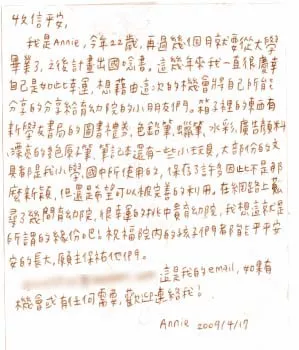 收信平安,
我是Annie,今年22歲,再過幾個月就要從大學
畢業了,之後計畫出國唸書。這幾年來我一直很慶幸
自己是如此幸運,想藉由這次的機會將自己所能
分享的分享給育幼院的小朋友們。箱子裡的東西有
新學友書局的圖書禮券,色鉛筆,蠟筆,水彩,廣告顏料
,漂亮的色原子筆,筆記本還有一些小玩具,大部份的文
具都是我小學,國中所使用的,保存了許多因此不是那
麼新穎,但還是希望可以被完善的利用。在網路上亂
尋了幾間育幼院,很幸運的挑中貴育幼院,我想這就是
所謂的緣份吧!祝福院內的孩子們都能平平安
安的長大,願主保祐他們。
這是我的email,如果有
機會或有任何需要,歡迎連絡我!
Annie 2009/4/17